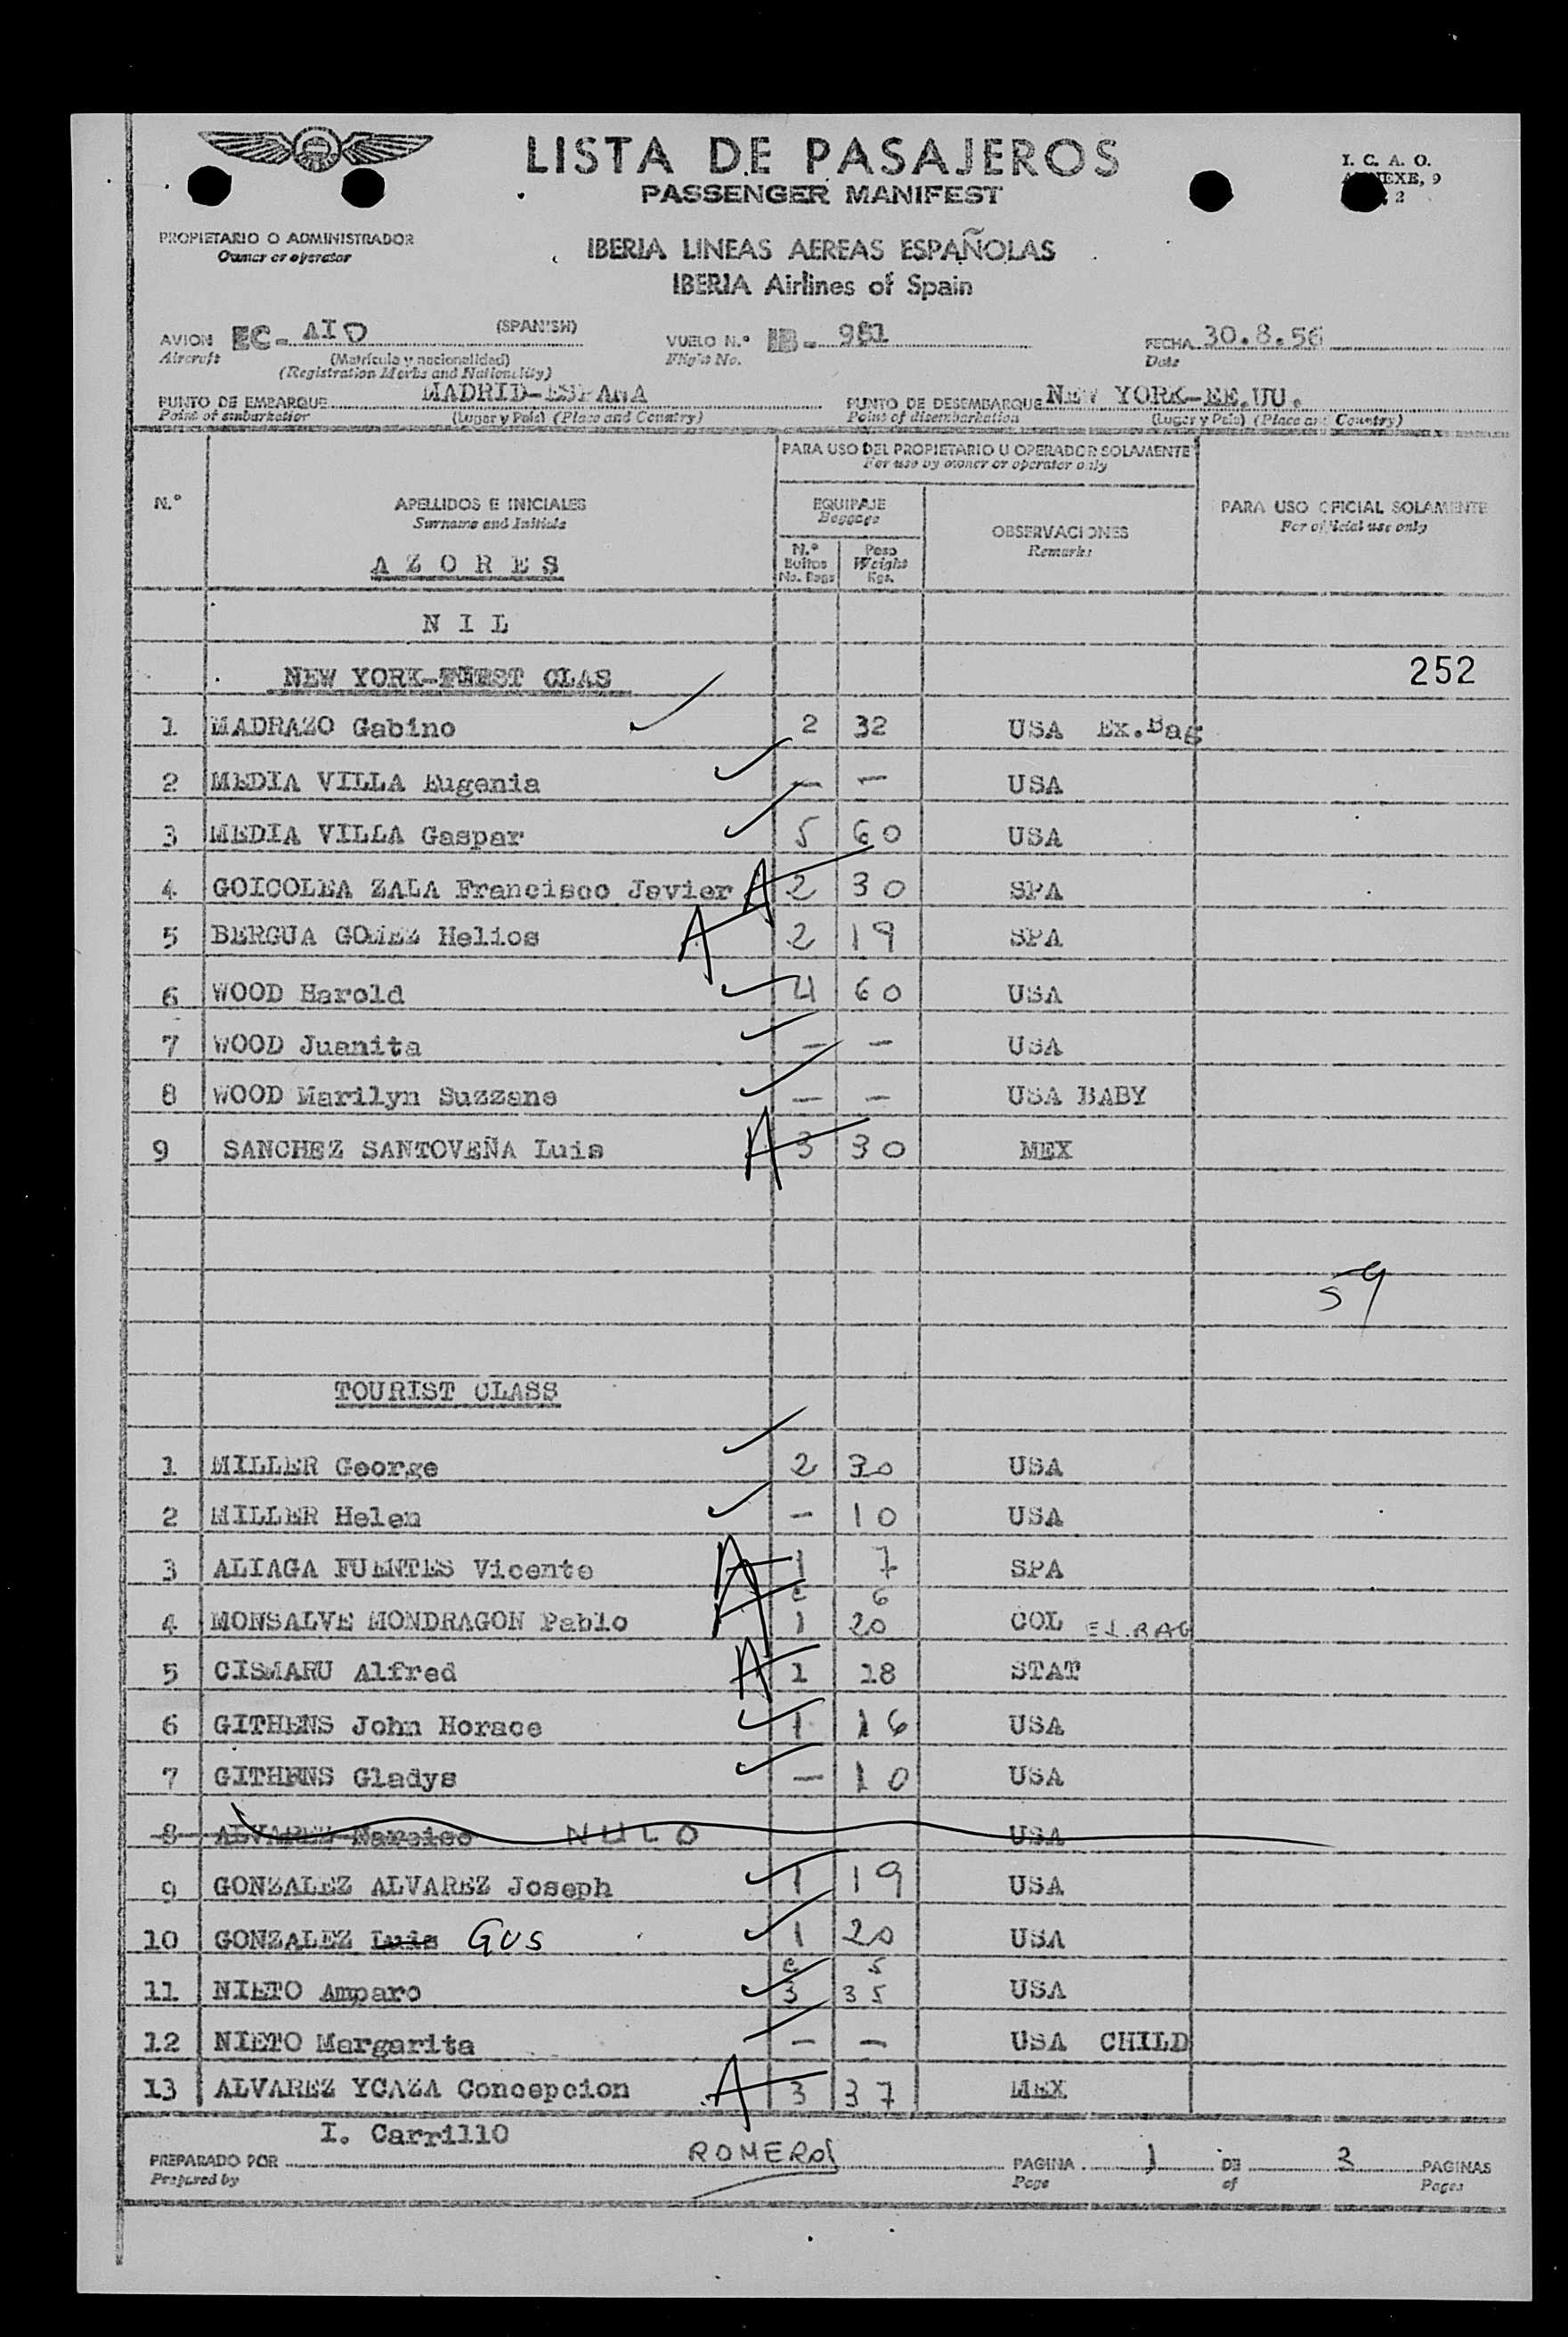 LISTA DE PASAJEROS
PASSENGER MANIFEST
I. C. A. O.
ANNEXE, 9
2
PROPIETARIO O ADMINISTRADOR
Owner or operator
IBERIA LINEAS AEREAS ESPAÑOLAS
IBERIA Airlines of Spain
AVION EC- AIO (SPANISH) VUELO N.º IB- 981 FECHA 30.8.56
Aircraft (Matrícula y nacionalidad) Flight No. Date
(Registration Marks and Nationality)
PUNTO DE EMBARQUE MADRID-ESPAÑA PUNTO DE DESEMBARQUE NEW YORK-EE.UU.
Point of embarkation (Lugar y País) (Place and Country) Point of disembarkation (Lugar y País) (Place and Country)
PARA USO DEL PROPIETARIO U OPERADOR SOLAMENTE
For use by owner or operator only
N.º APELLIDOS E INICIALES EQUIPAJE OBSERVACIONES PARA USO OFICIAL SOLAMENTE
Surname and Initials Baggage Remarks For official use only
AZORES N.º Bultos No. Bags Peso Weight Kgs.
NIL
NEW YORK-FIRST CLAS 252
1 MADRAZO Gabino 2 32 USA Ex.Bag
2 MEDIA VILLA Eugenia — — USA
3 MEDIA VILLA Gaspar 5 60 USA
4 GOICOLEA ZALA Francisco Javier A 2 30 SPA
5 BERGUA GOMEZ Helios A 2 19 SPA
6 WOOD Harold 4 60 USA
7 WOOD Juanita — — USA
8 WOOD Marilyn Suzzane — — USA BABY
9 SANCHEZ SANTOVEÑA Luis A 3 30 MEX
59
TOURIST CLASS
1 MILLER George 2 30 USA
2 MILLER Helen — 10 USA
3 ALIAGA FUENTES Vicente A 1 7 SPA
c 6
4 MONSALVE MONDRAGON Pablo A 1 20 COL EX.BAG
5 CISMARU Alfred A 1 18 STAT
6 GITHENS John Horace 1 16 USA
7 GITHENS Gladys — 10 USA
8 ALVAREZ Narciso NULO USA
9 GONZALEZ ALVAREZ Joseph 1 19 USA
10 GONZALEZ Luis GUS 1 20 USA
c 5
11 NIETO Amparo 3 35 USA
12 NIETO Margarita — — USA CHILD
13 ALVAREZ YCAZA Concepcion A 3 37 MEX
I. Carrillo
PREPARADO POR ROMERO PAGINA 1 DE 3 PAGINAS
Prepared by Page of Pages